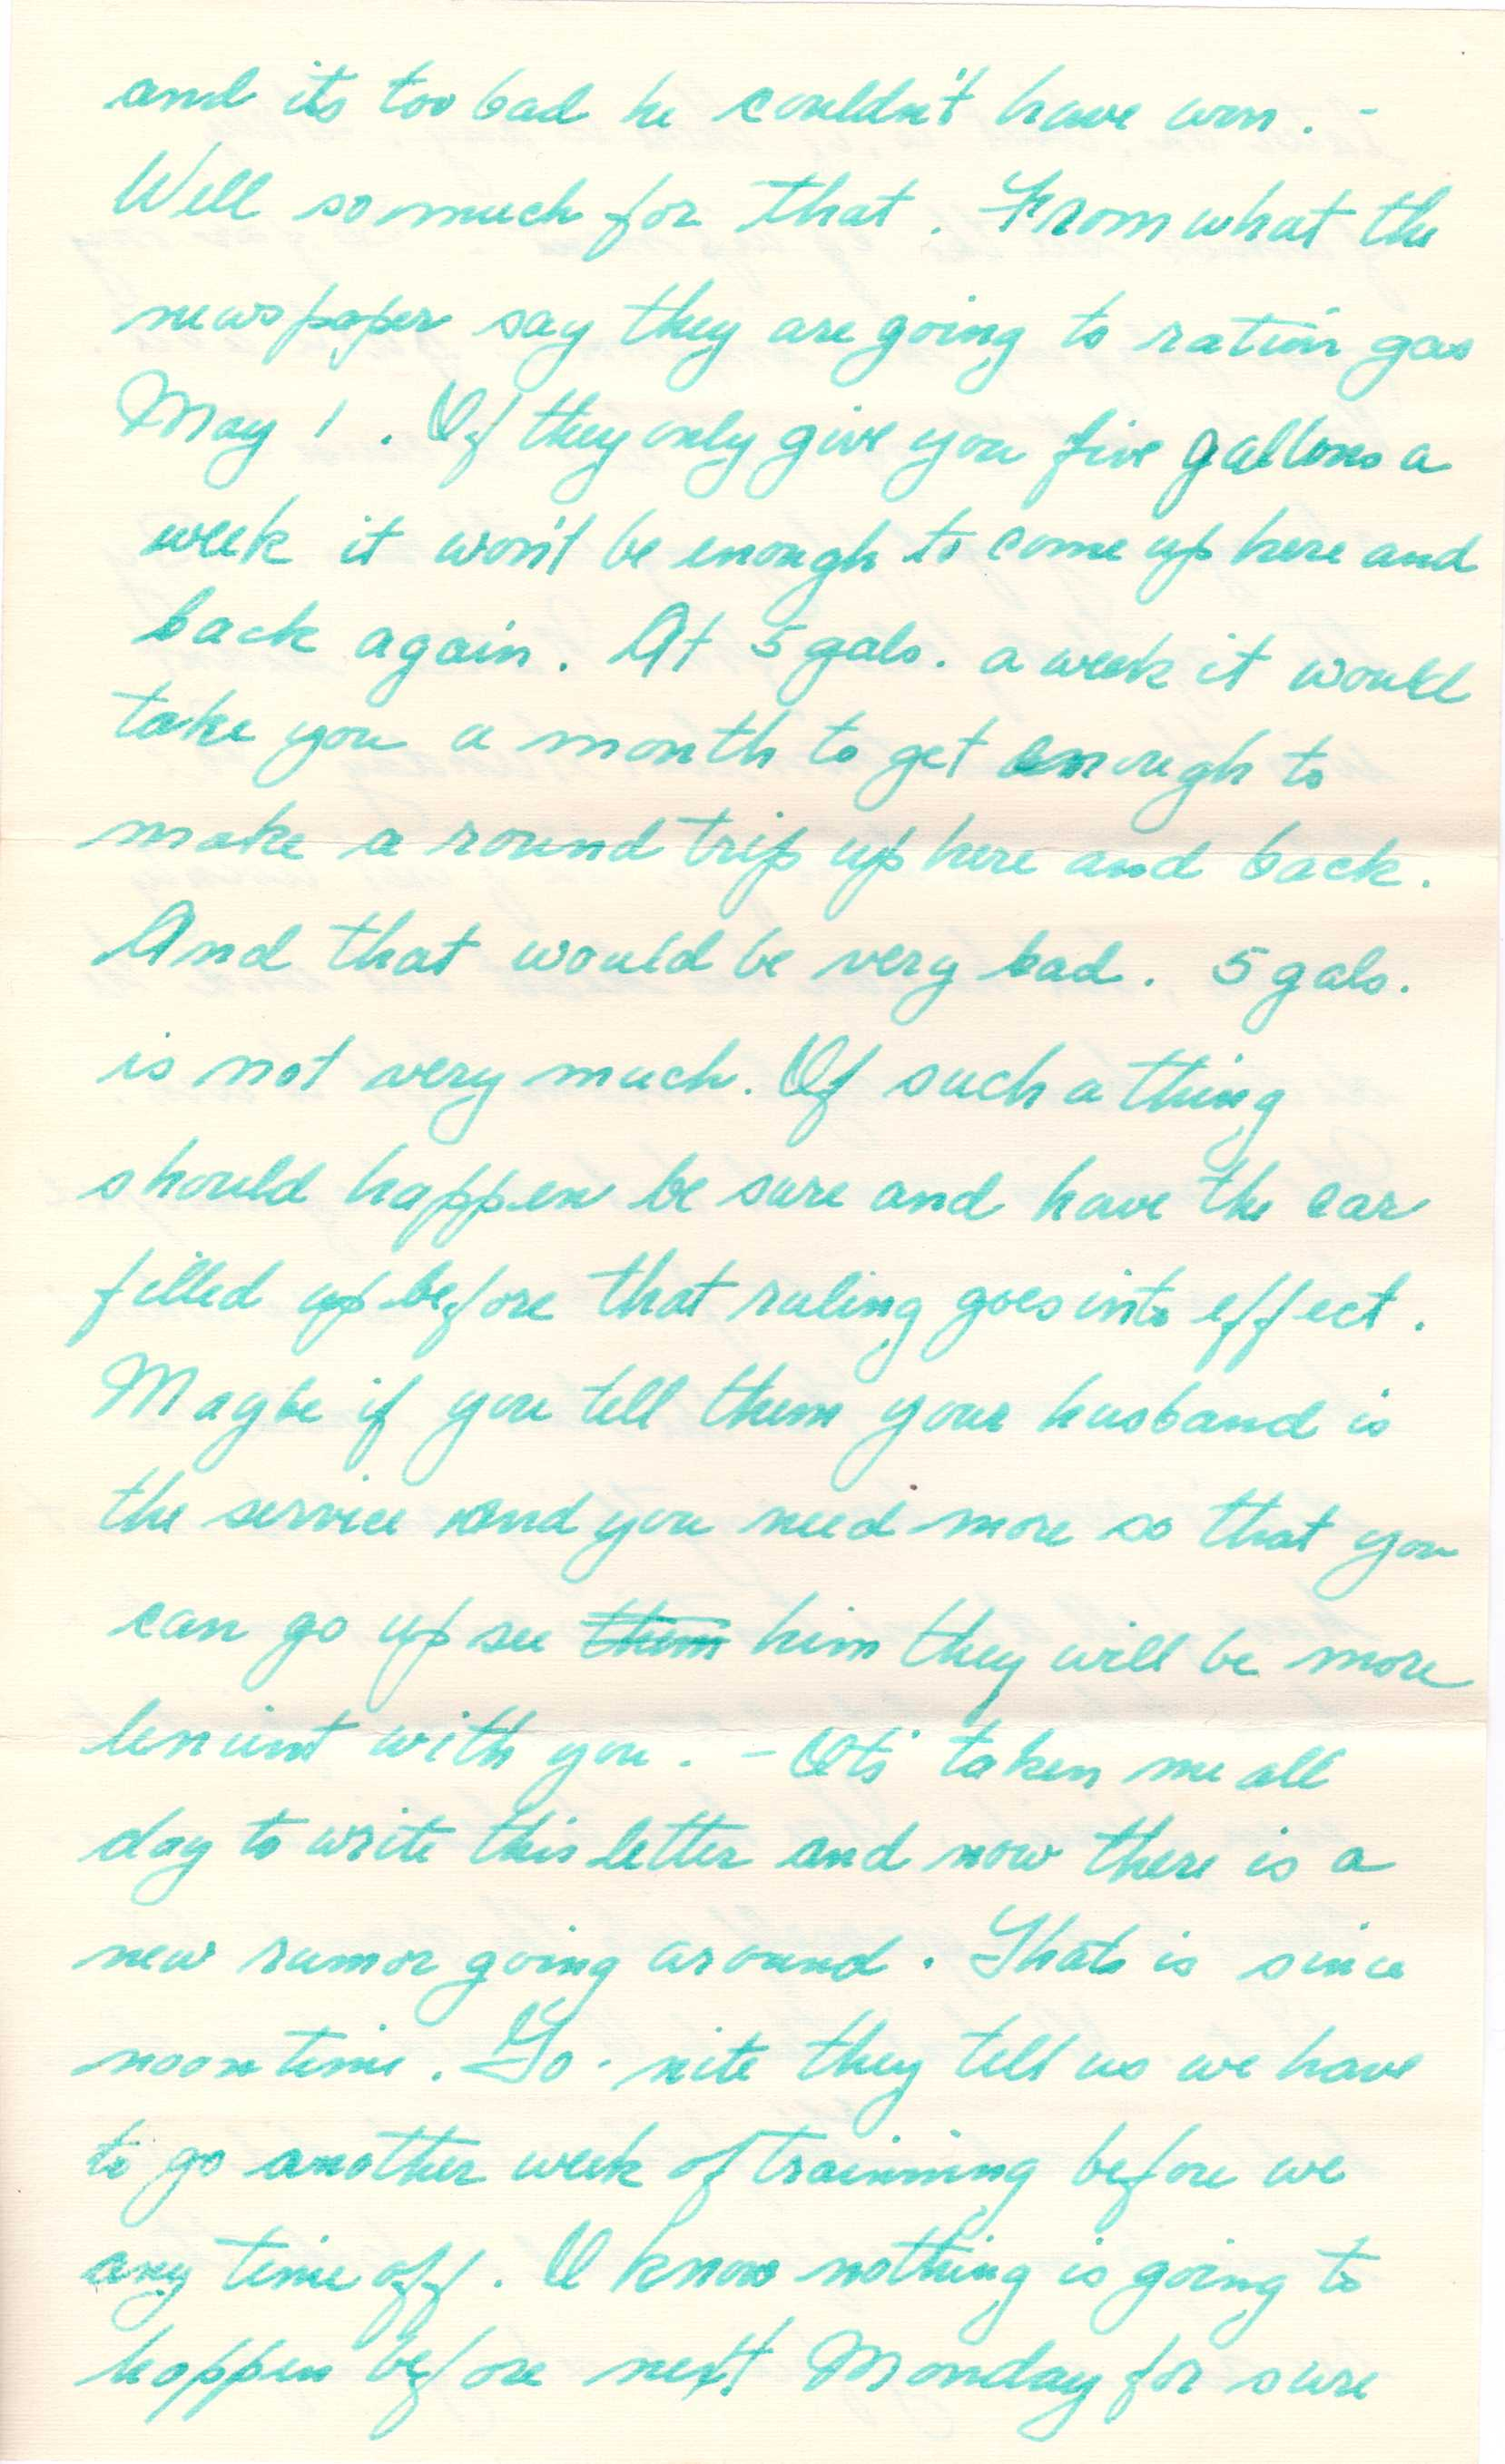 and its too bad he couldn't have won. -
Well so much for that. From what the
newspaper say they are going to ration gas
May 1. If they only give you five gallons a
week it won't be enough to come up here and
back again. At 5 gals. a week it would
take you a month to get enough to
make a round trip up here and back.
And that would be very bad. 5 gals.
is not very much. If such a thing
should happen be sure and have the car
filled up before that ruling goes into effect.
Maybe if you tell them your husband is
the service and you need more so that you
can go up see them him they will be more
lenient with you. - Its' taken me all
day to write this letter and now there is a
new rumor going around. Thats is since
noontime. To-nite they tell us we have
to go another week of trainning before we
any time off. I know nothing is going to
happen before next Monday for sure